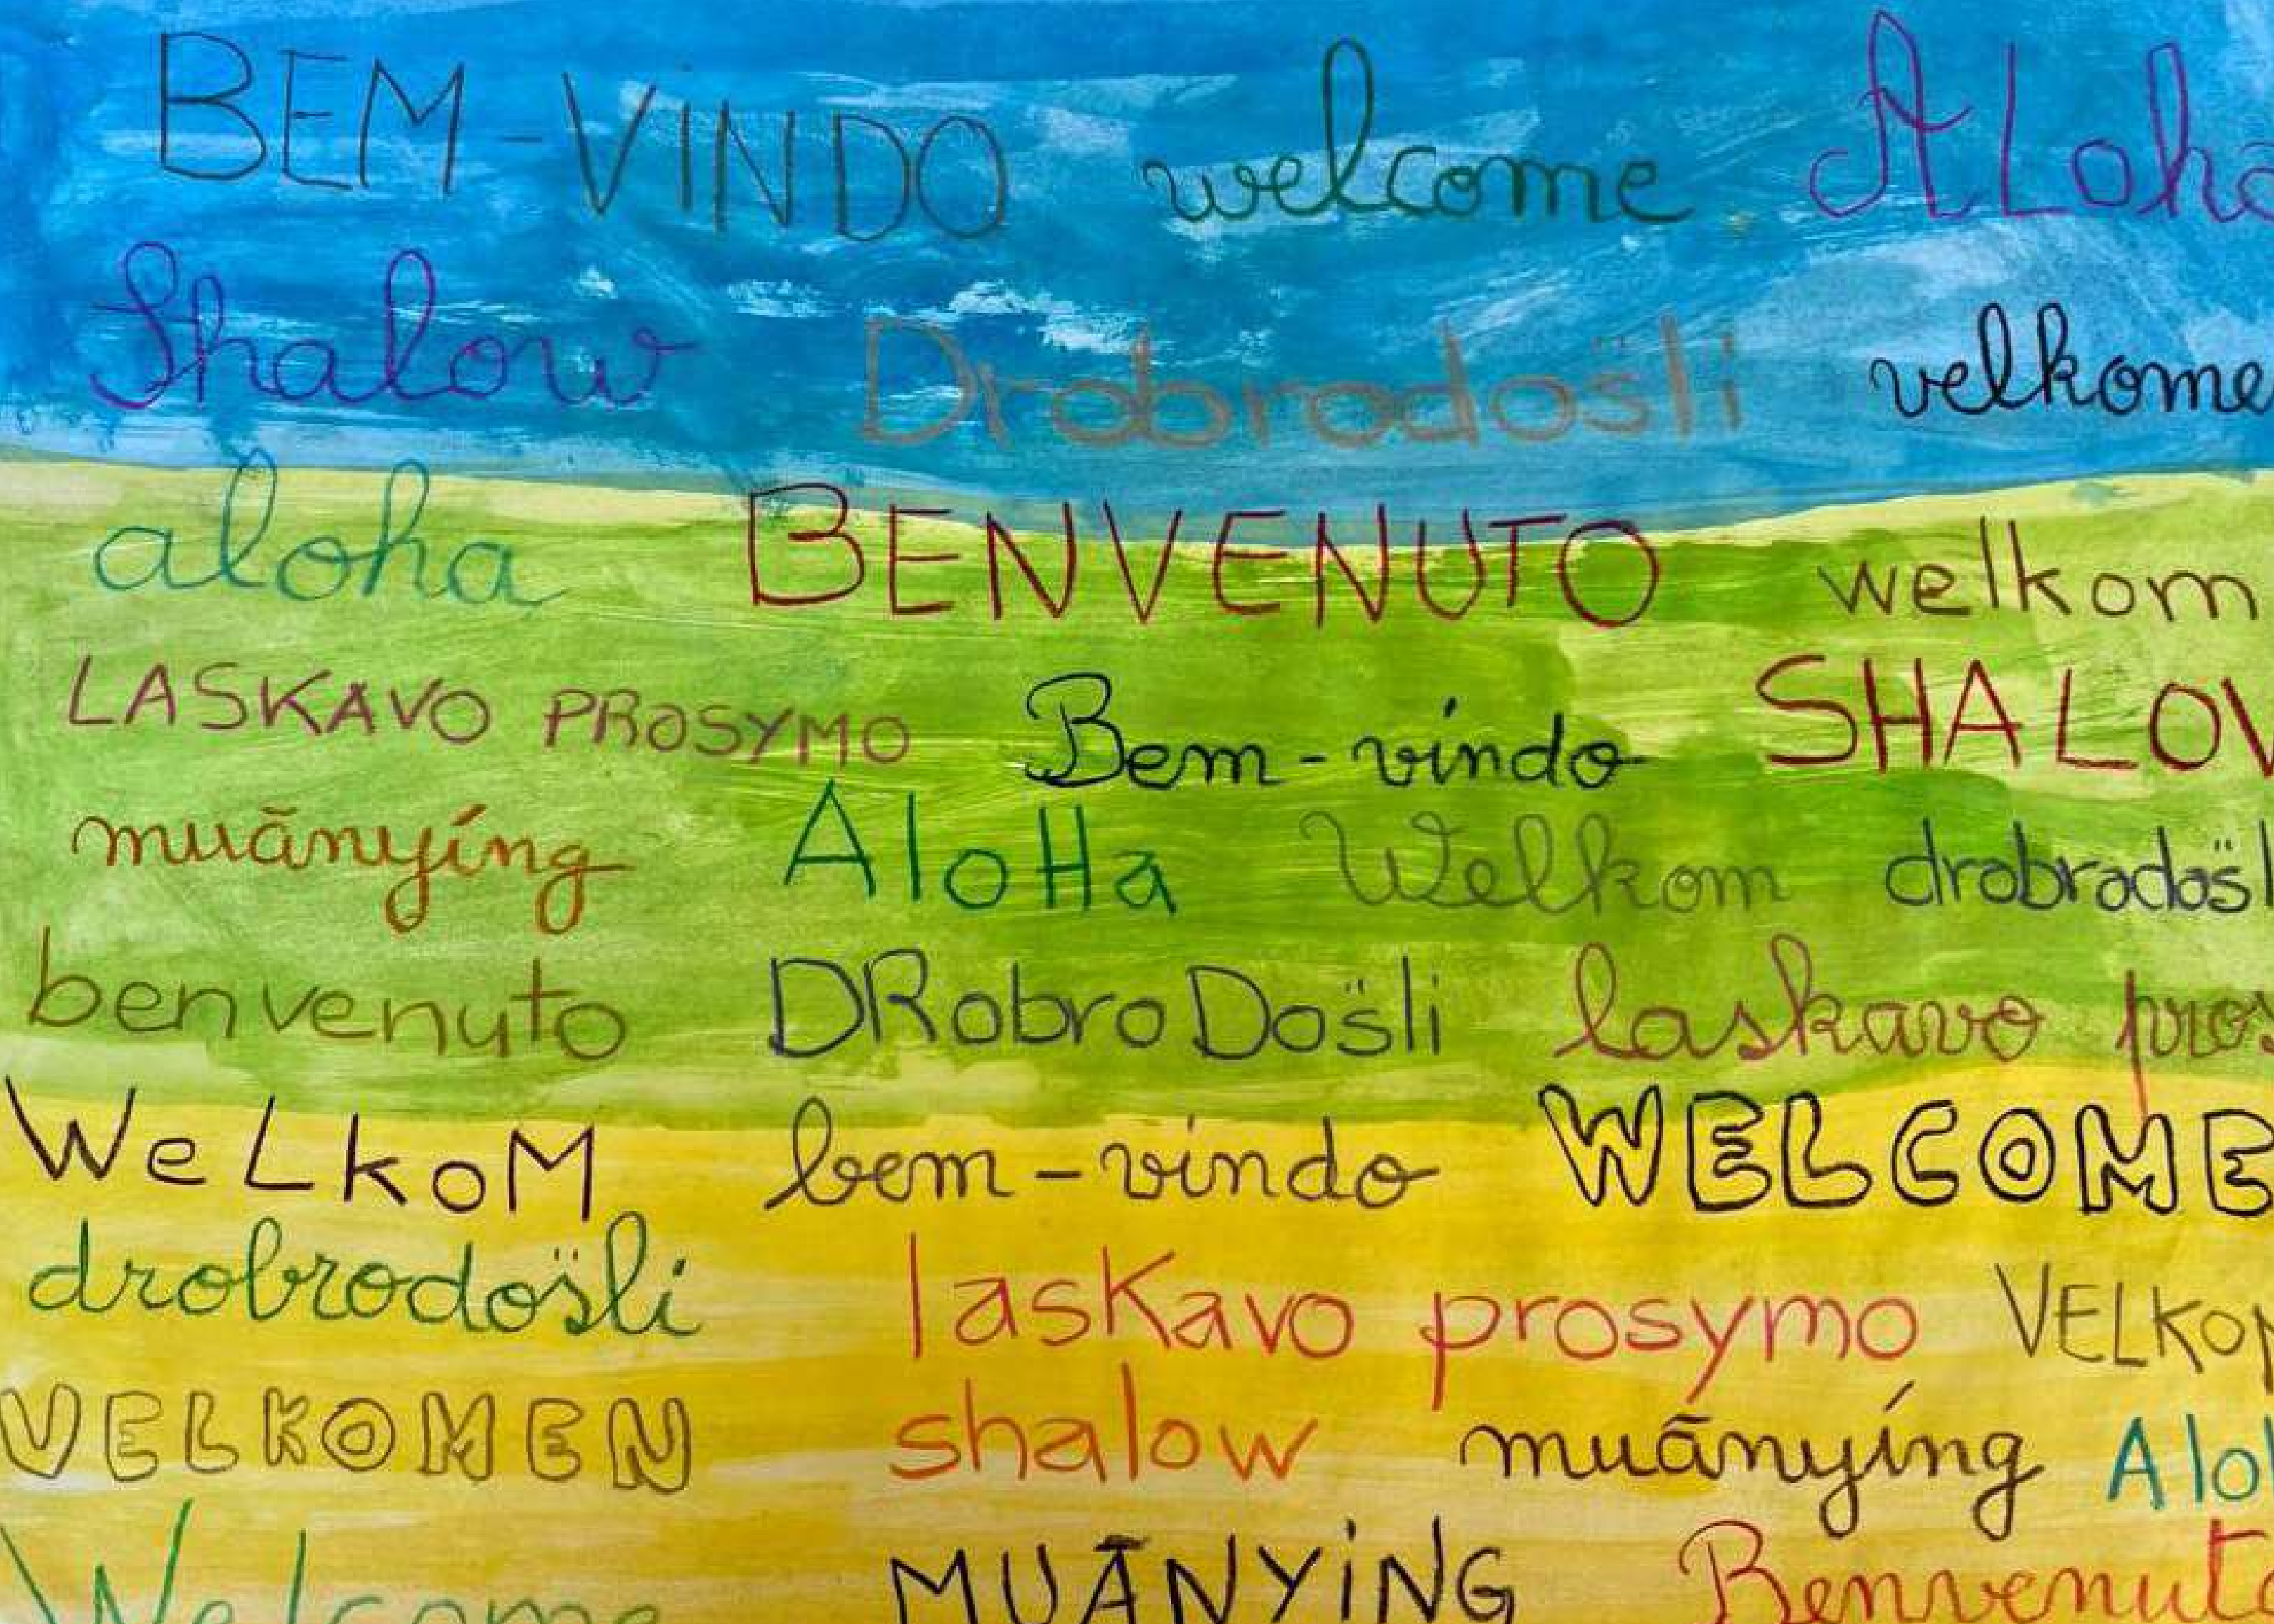 BEM-VINDO welcome ALoha
Shalow Drobrodöšli velkome
aloha BENVENUTO welkom
LASKAVO PROSYMO Bem-vindo SHALOW
muānyíng AloHa Welkom drobrodösl
benvenuto DRobroDösli laskavo pros
WeLkoM bem-vindo WELCOME
drobrodösli lasKavo prosymo VELKOM
VELKOMEN shalow muānyíng Aloh
Welcome MUĀNYiNG Benvenuto